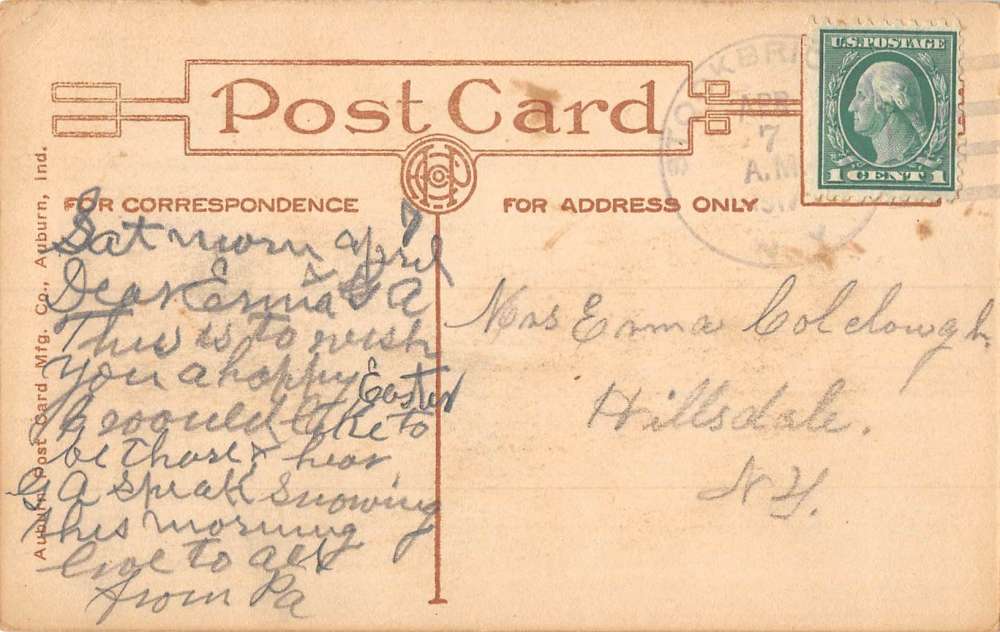 Post Card
STOCKBRI
APR
7
A.M
1917
N.Y.
U.S.POSTAGE
1 CENT 1
FOR CORRESPONDENCE
FOR ADDRESS ONLY
Auburn Post Card Mfg. Co., Auburn, Ind.
Sat morn April 7
Dear Erma & G A
This is to wish
you a happy Easter
I would like to
be thare & hear
G A speak Snowing
this morning
love to all
from Pa
Mrs Erma Colclough.
Hillsdale.
N.Y.